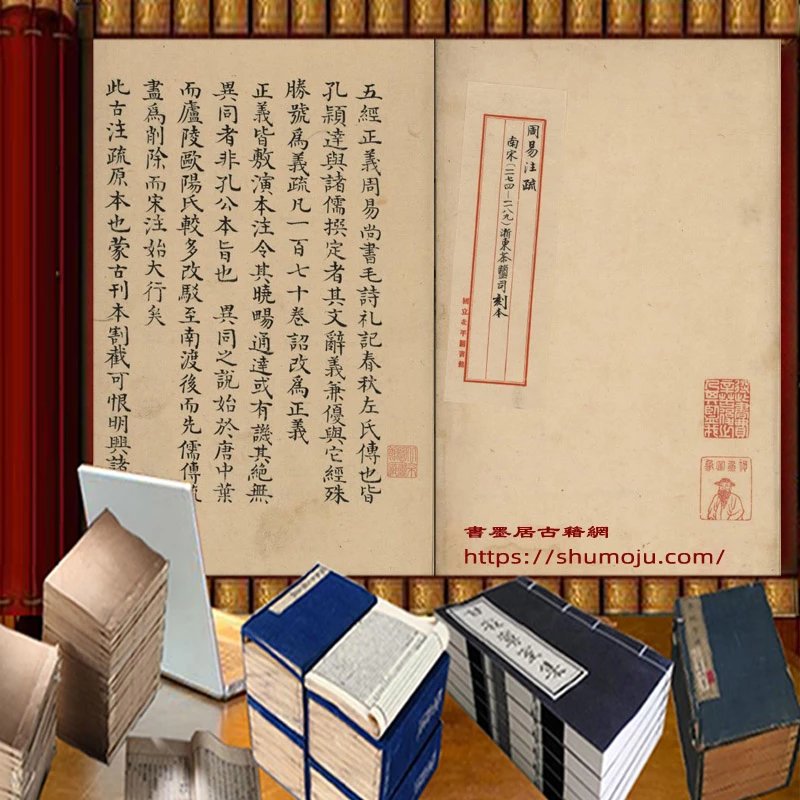 周易注疏
南宋(一二七四—一二八九)浙東茶鹽司刻本
國立北平圖書館
五經正義周易尚書毛詩礼記春秋左氏傳也皆
孔穎達與諸儒撰定者其文辭義兼優與它經殊
勝號爲義疏凡一百七十卷詔改爲正義
正義皆敷演本注令其曉暢通達或有譏其絶無
異同者非孔公本旨也 異同之說始於唐中葉
而廬陵歐陽氏較多改駁至南渡後而先儒傳
盡爲削除而宋注始大行矣
此古注疏原本也蒙古刊本割截可恨明興諸
書墨居古籍網
https://shumoju.com/